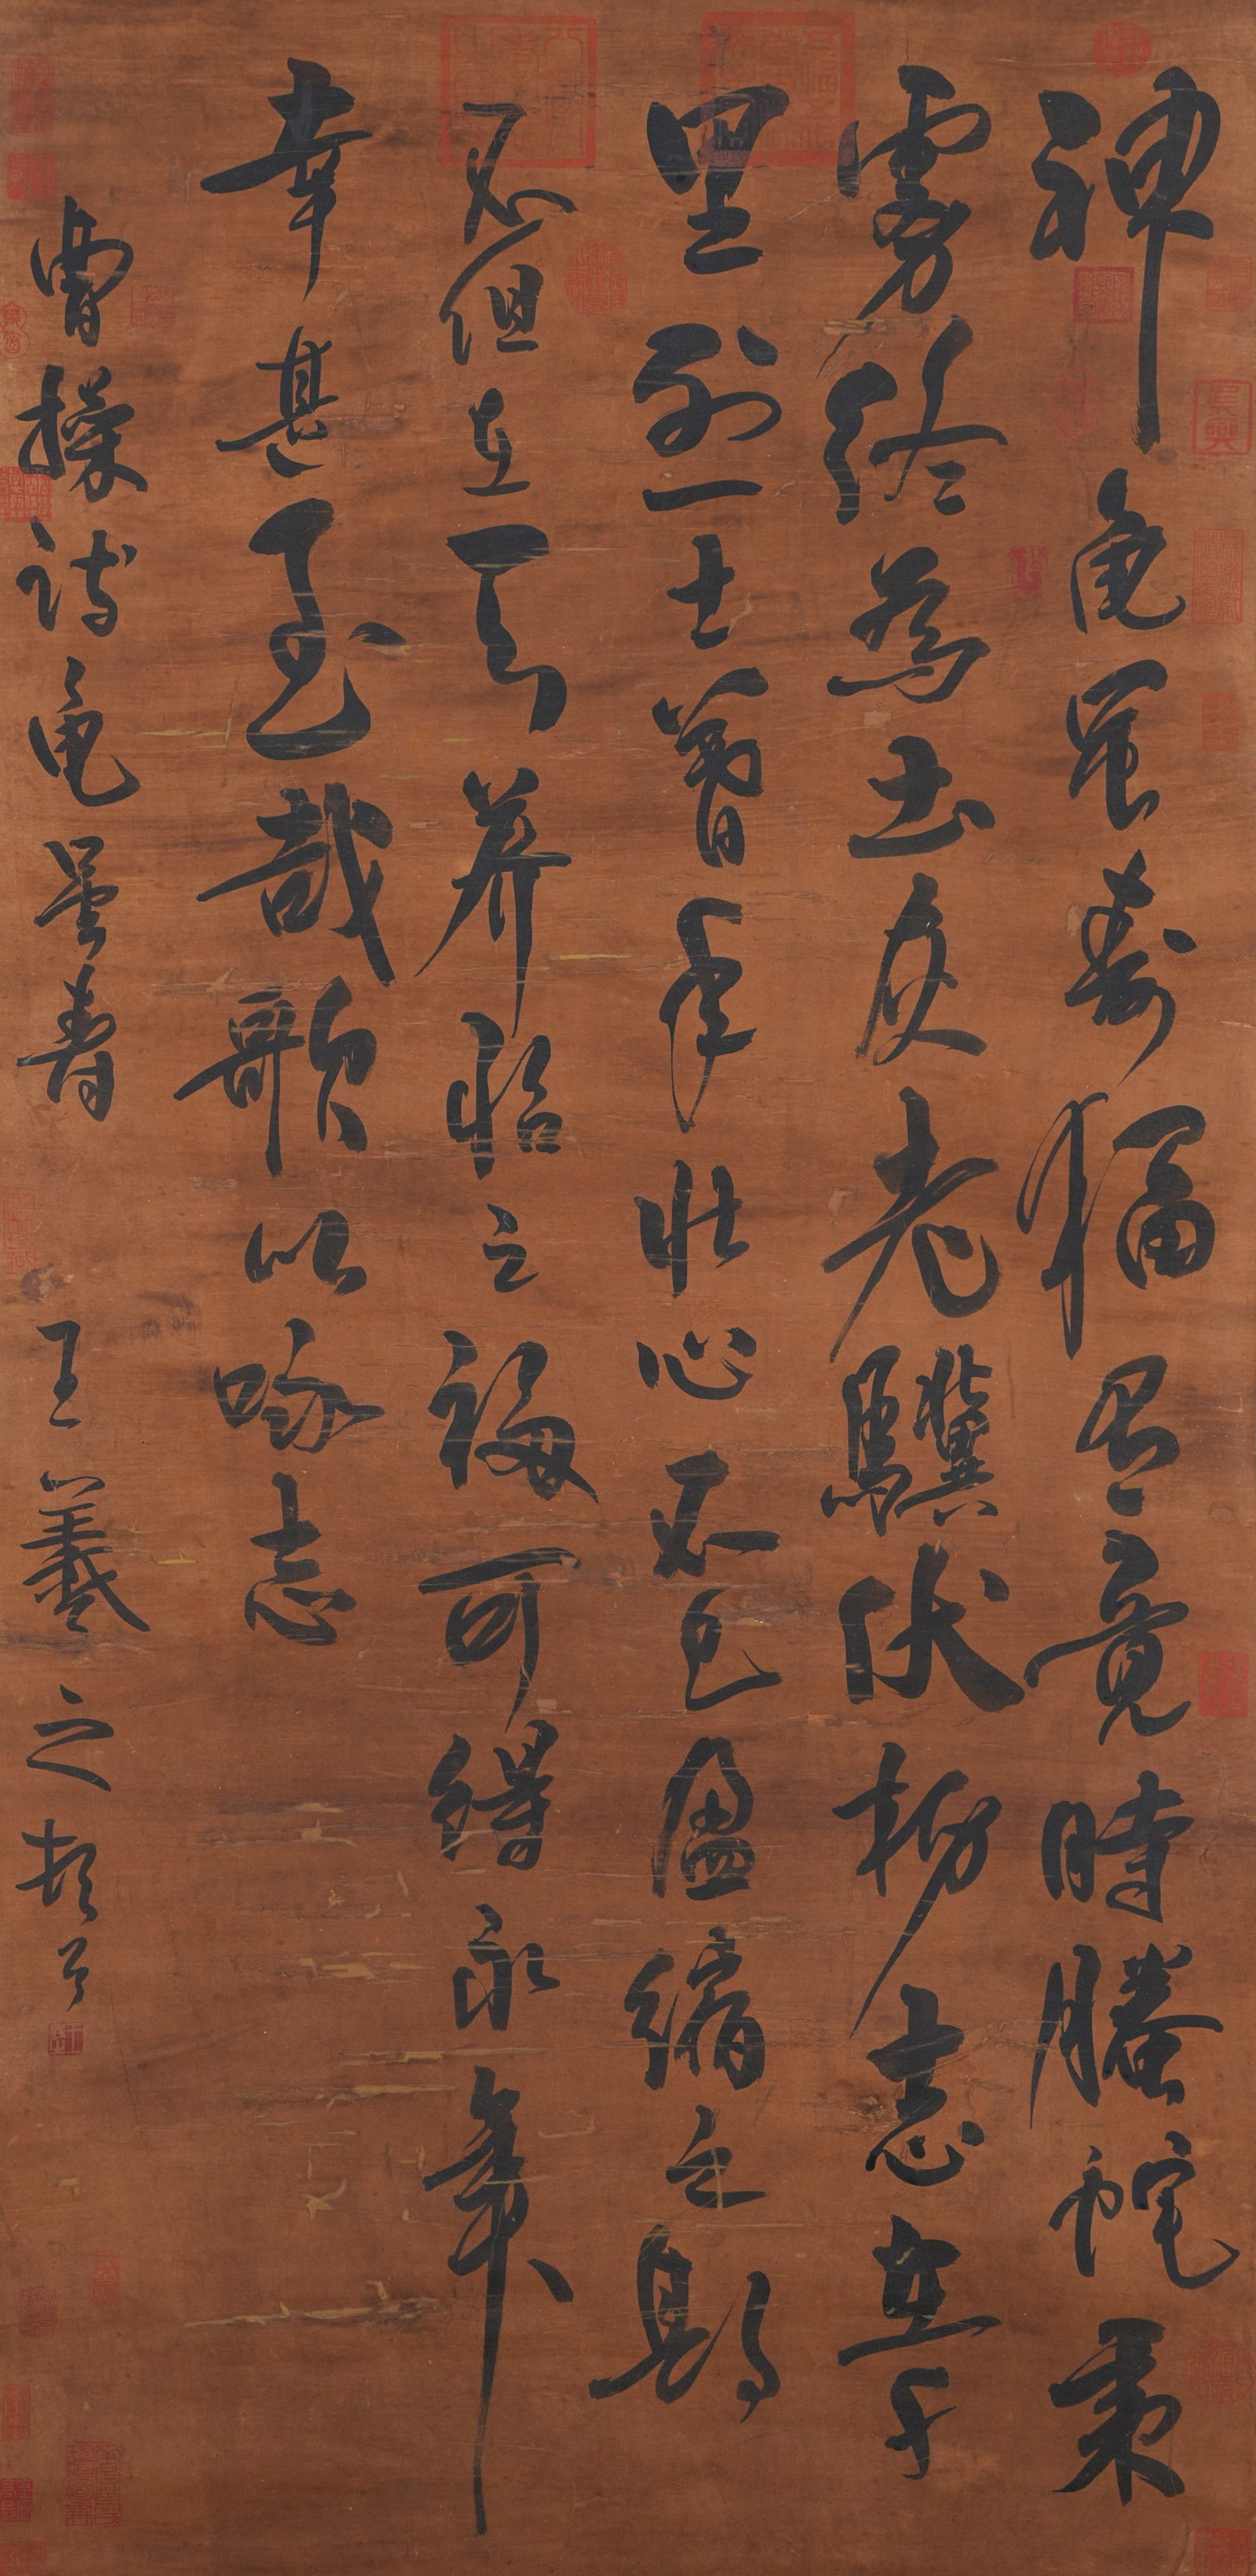 神龜雖壽猶有竟時螣蛇乘
霧終為土灰老驥伏櫪志在千
里烈士暮年壯心不已盈縮之期
不但在天養怡之福可得永年
幸甚至哉歌以咏志
曹操詩龜雖壽 王羲之頓首